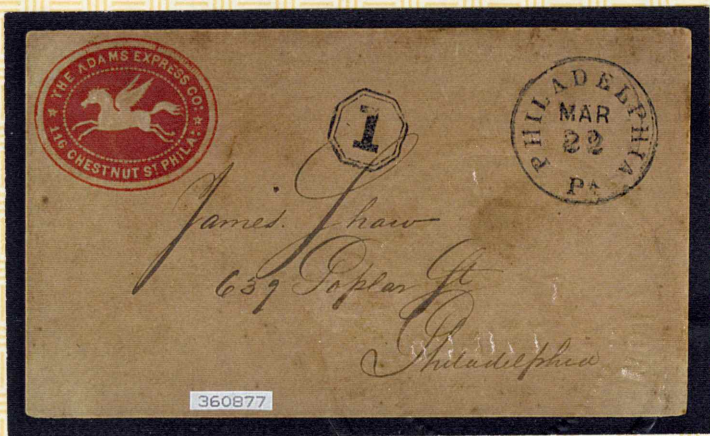 THE ADAMS EXPRESS CO:
116 CHESTNUT ST PHILA:
1
PHILADELPHIA
MAR
22
Pa
James. Shaw
639 Poplar St
Philadelphia
360877